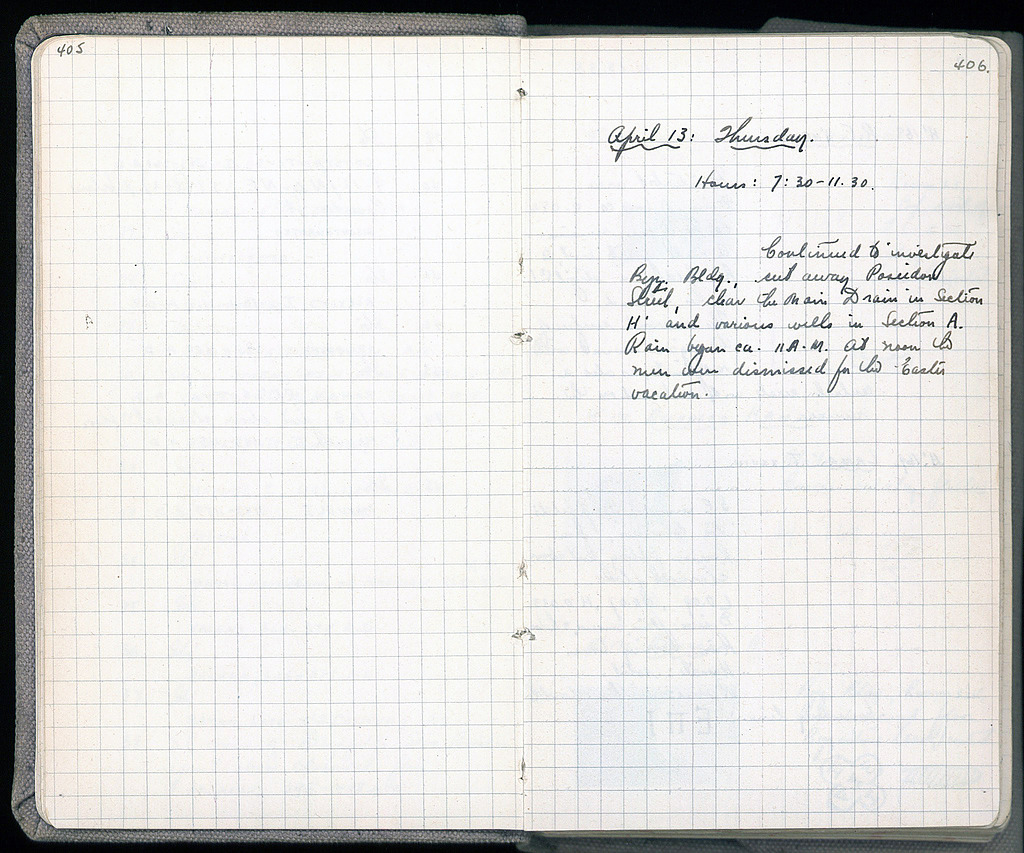 405
406.
April 13: Thursday.
Hours: 7:30-11.30.
Continued to investigate
Byz. Bldg., cut away Poseidon
Street, clear the Main Drain in Section
H' and various wells in Section A.
Rain began ca. 11 A.M. At noon the
men were dismissed for the Easter
vacation.